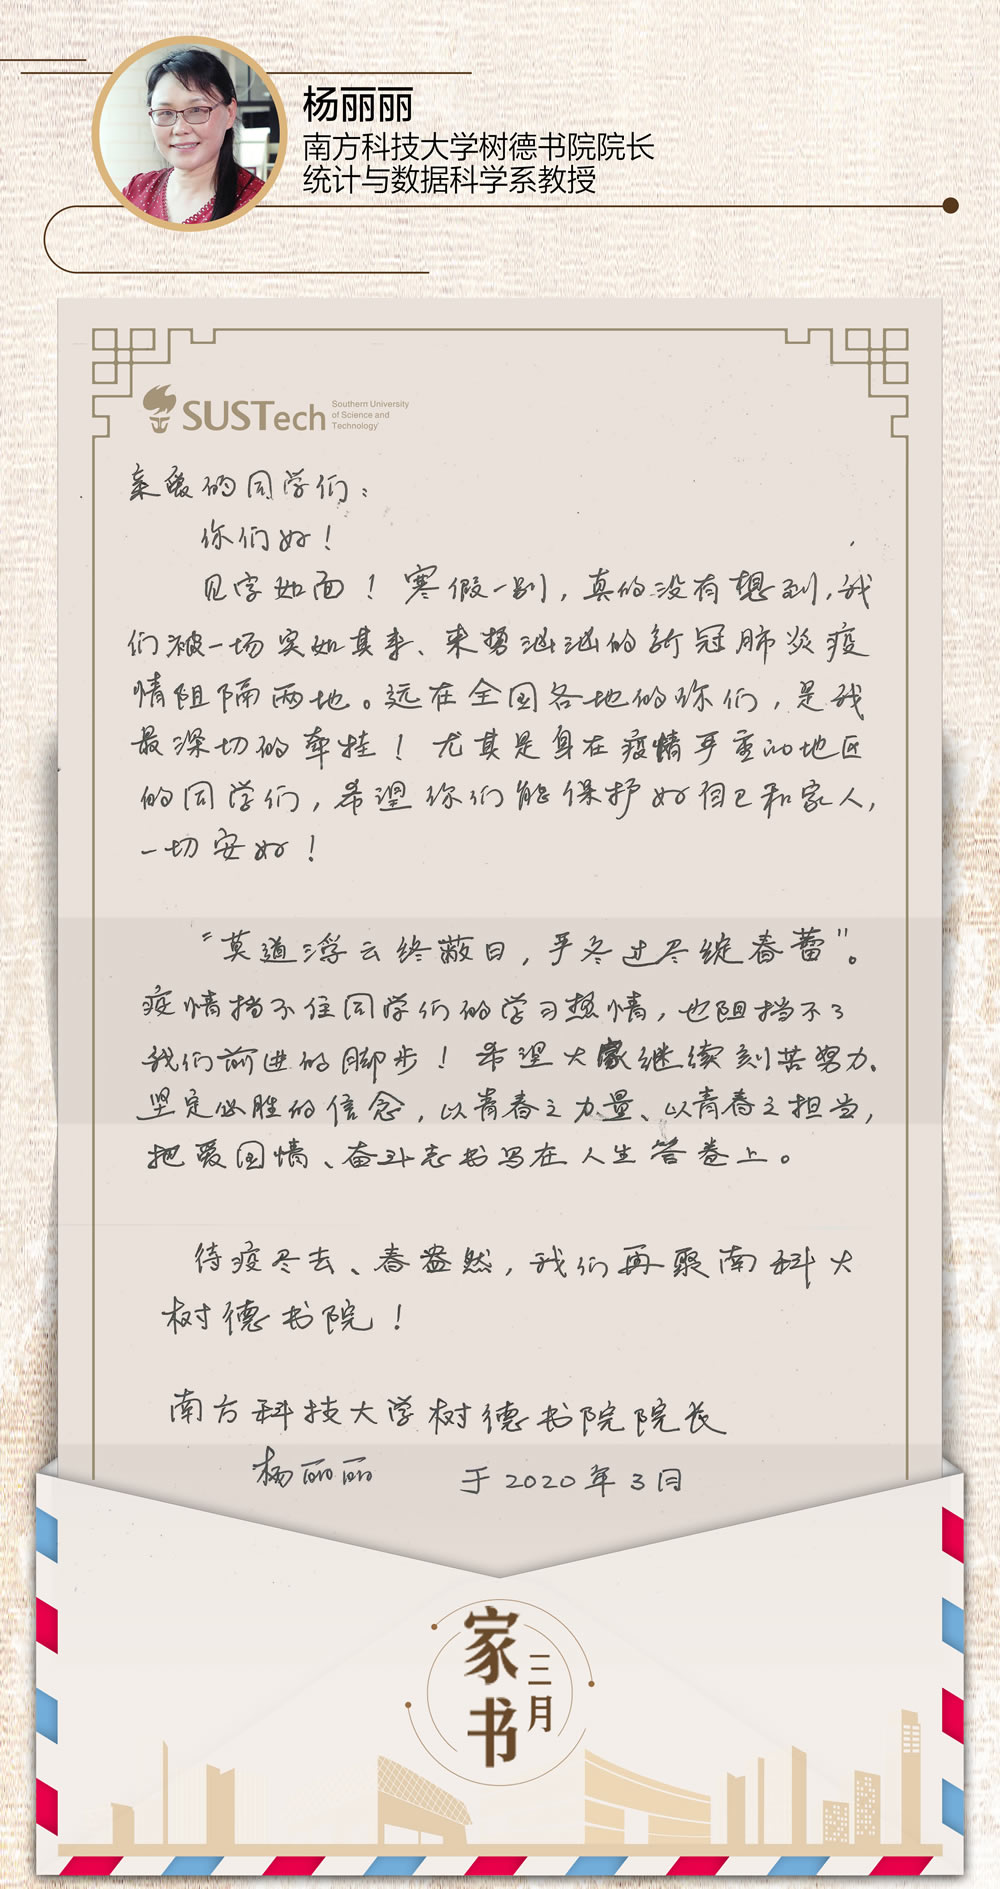 杨丽丽
南方科技大学树德书院院长
统计与数据科学系教授
SUSTech
Southern University
of Science and
Technology
亲爱的同学们：
你们好！
见字如面！寒假一别，真的没有想到，我
们被一场突如其来、来势汹汹的新冠肺炎疫
情阻隔两地。远在全国各地的你们，是我
最深切的牵挂！尤其是身在疫情严重的地区
的同学们，希望你们能保护好自己和家人，
一切安好！
“莫道浮云终蔽日，严冬过尽绽春蕾”。
疫情挡不住同学们的学习热情，也阻挡不了
我们前进的脚步！希望大家继续刻苦努力、
坚定必胜的信念，以青春之力量、以青春之担当，
把爱国情、奋斗志书写在人生答卷上。
待疫尽去、春盎然，我们再聚南科大
树德书院！
南方科技大学树德书院院长
杨丽丽 于2020年3月
家书
三月